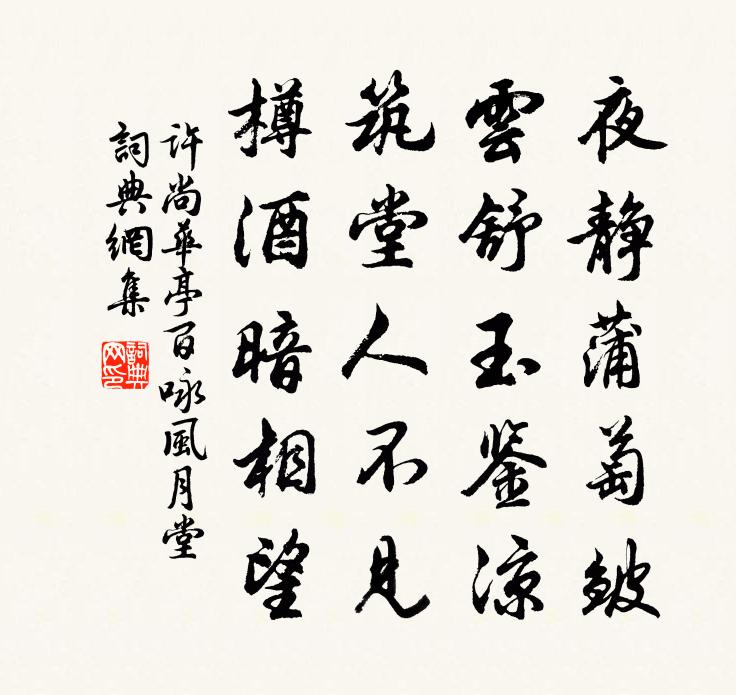 夜静蒲萄皴
雲舒玉鉴涼
筑堂人不見
樽酒暗相望
許尚華亭百咏風月堂
詞典網集
詞典网印